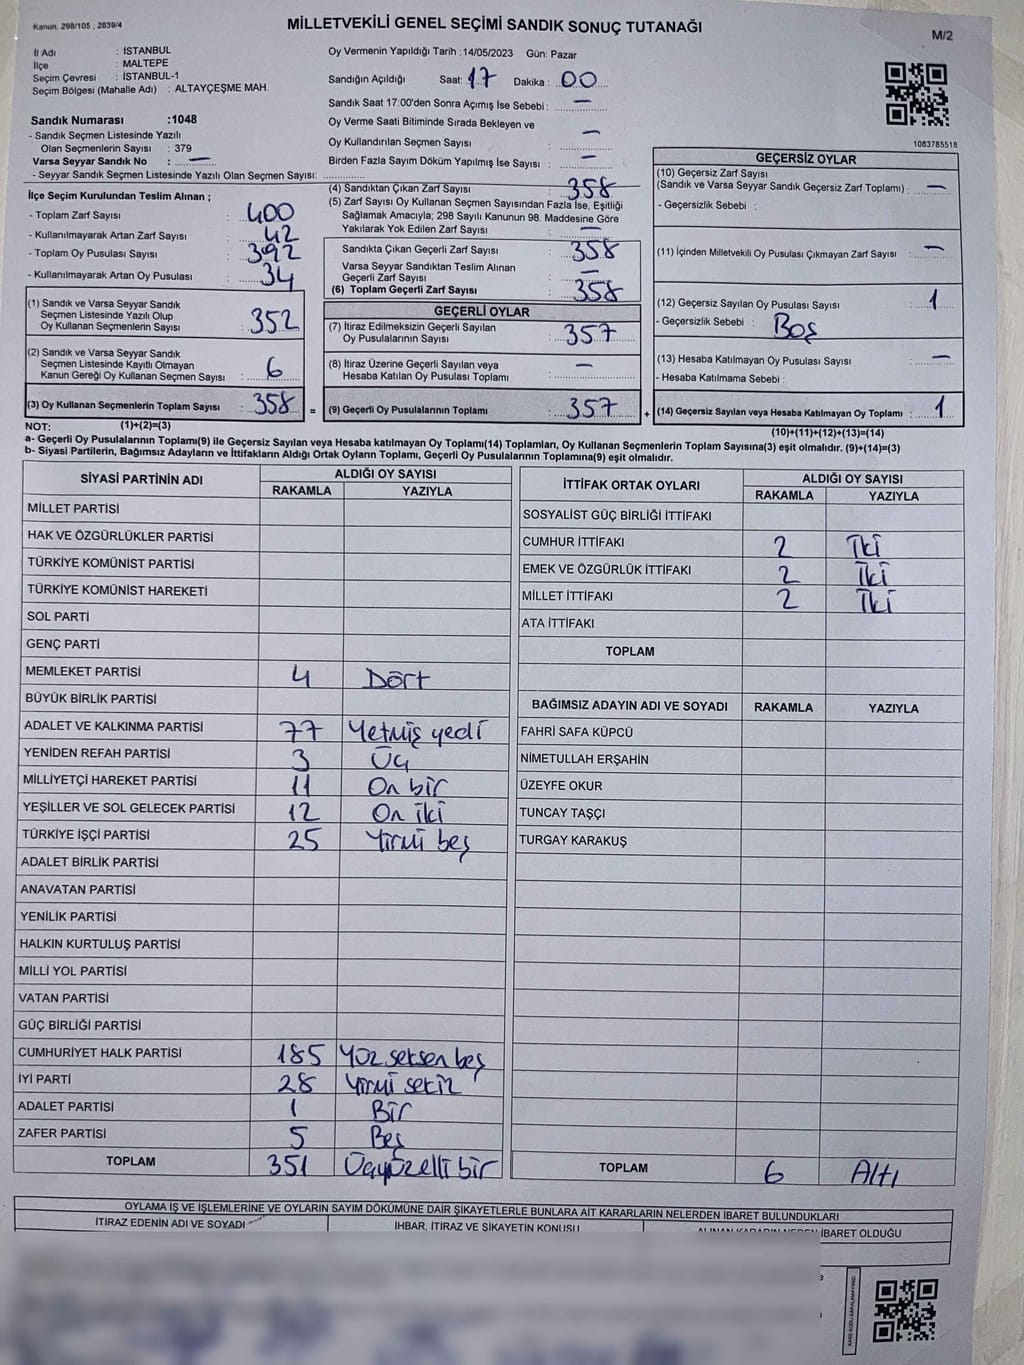 Kanun, 298/105 , 2839/4
MİLLETVEKİLİ GENEL SEÇİMİ SANDIK SONUÇ TUTANAĞI
M/2
İl Adı : İSTANBUL
İlçe : MALTEPE
Seçim Çevresi : İSTANBUL-1
Seçim Bölgesi (Mahalle Adı) : ALTAYÇEŞME MAH.
Sandık Numarası :1048
- Sandık Seçmen Listesinde Yazılı
Olan Seçmenlerin Sayısı : 379
Varsa Seyyar Sandık No : —
- Seyyar Sandık Seçmen Listesinde Yazılı Olan Seçmen Sayısı:
Oy Vermenin Yapıldığı Tarih :14/05/2023 Gün: Pazar
Sandığın Açıldığı Saat: 17 Dakika : 00
Sandık Saat 17:00'den Sonra Açımış İse Sebebi : —
Oy Verme Saati Bitiminde Sırada Bekleyen ve
Oy Kullandırılan Seçmen Sayısı : —
Birden Fazla Sayım Döküm Yapılmış İse Sayısı : —
1083785518
İlçe Seçim Kurulundan Teslim Alınan ;
- Toplam Zarf Sayısı : 400
- Kullanılmayarak Artan Zarf Sayısı : 42
- Toplam Oy Pusulası Sayısı : 392
- Kullanılmayarak Artan Oy Pusulası : 34
(1) Sandık ve Varsa Seyyar Sandık
Seçmen Listesinde Yazılı Olup
Oy Kullanan Seçmenlerin Sayısı : 352
(2) Sandık ve Varsa Seyyar Sandık
Seçmen Listesinde Kayıtlı Olmayan
Kanun Gereği Oy Kullanan Seçmen Sayısı : 6
(3) Oy Kullanan Seçmenlerin Toplam Sayısı : 358 =
(4) Sandıktan Çıkan Zarf Sayısı : 358
(5) Zarf Sayısı Oy Kullanan Seçmen Sayısından Fazla İse, Eşitliği
Sağlamak Amacıyla; 298 Sayılı Kanunun 98. Maddesine Göre
Yakılarak Yok Edilen Zarf Sayısı : —
Sandıkta Çıkan Geçerli Zarf Sayısı : 358
Varsa Seyyar Sandıktan Teslim Alınan
Geçerli Zarf Sayısı : —
(6) Toplam Geçerli Zarf Sayısı : 358
GEÇERLİ OYLAR
(7) İtiraz Edilmeksizin Geçerli Sayılan
Oy Pusulalarının Sayısı : 357
(8) İtiraz Üzerine Geçerli Sayılan veya
Hesaba Katılan Oy Pusulası Toplamı : —
(9) Geçerli Oy Pusulalarının Toplamı : 357 +
GEÇERSİZ OYLAR
(10) Geçersiz Zarf Sayısı
(Sandık ve Varsa Seyyar Sandık Geçersiz Zarf Toplamı) : —
- Geçersizlik Sebebi :
(11) İçinden Milletvekili Oy Pusulası Çıkmayan Zarf Sayısı : —
(12) Geçersiz Sayılan Oy Pusulası Sayısı : 1
- Geçersizlik Sebebi : Boş
(13) Hesaba Katılmayan Oy Pusulası Sayısı : —
- Hesaba Katılmama Sebebi :
(14) Geçersiz Sayılan veya Hesaba Katılmayan Oy Toplamı : 1
NOT: (1)+(2)=(3)
(10)+(11)+(12)+(13)=(14)
a- Geçerli Oy Pusulalarının Toplamı(9) ile Geçersiz Sayılan veya Hesaba katılmayan Oy Toplamı(14) Toplamları, Oy Kullanan Seçmenlerin Toplam Sayısına(3) eşit olmalıdır. (9)+(14)=(3)
b- Siyasi Partilerin, Bağımsız Adayların ve İttifakların Aldığı Ortak Oyların Toplamı, Geçerli Oy Pusulalarının Toplamına(9) eşit olmalıdır.
SİYASİ PARTİNİN ADI ALDIĞI OY SAYISI
RAKAMLA YAZIYLA
MİLLET PARTİSİ
HAK VE ÖZGÜRLÜKLER PARTİSİ
TÜRKİYE KOMÜNİST PARTİSİ
TÜRKİYE KOMÜNİST HAREKETİ
SOL PARTİ
GENÇ PARTİ
MEMLEKET PARTİSİ 4 Dört
BÜYÜK BİRLİK PARTİSİ
ADALET VE KALKINMA PARTİSİ 77 Yetmiş yedi
YENİDEN REFAH PARTİSİ 3 Üç
MİLLİYETÇİ HAREKET PARTİSİ 11 On bir
YEŞİLLER VE SOL GELECEK PARTİSİ 12 On iki
TÜRKİYE İŞÇİ PARTİSİ 25 Yirmi beş
ADALET BİRLİK PARTİSİ
ANAVATAN PARTİSİ
YENİLİK PARTİSİ
HALKIN KURTULUŞ PARTİSİ
MİLLİ YOL PARTİSİ
VATAN PARTİSİ
GÜÇ BİRLİĞİ PARTİSİ
CUMHURİYET HALK PARTİSİ 185 Yüz seksen beş
İYİ PARTİ 28 Yirmi sekiz
ADALET PARTİSİ 1 Bir
ZAFER PARTİSİ 5 Beş
TOPLAM 351 Üçyüzelli bir
İTTİFAK ORTAK OYLARI ALDIĞI OY SAYISI
RAKAMLA YAZIYLA
SOSYALİST GÜÇ BİRLİĞİ İTTİFAKI
CUMHUR İTTİFAKI 2 İki
EMEK VE ÖZGÜRLÜK İTTİFAKI 2 İki
MİLLET İTTİFAKI 2 İki
ATA İTTİFAKI
TOPLAM
BAĞIMSIZ ADAYIN ADI VE SOYADI RAKAMLA YAZIYLA
FAHRİ SAFA KÜPCÜ
NİMETULLAH ERŞAHİN
ÜZEYFE OKUR
TUNCAY TAŞÇI
TURGAY KARAKUŞ
TOPLAM 6 Altı
OYLAMA İŞ VE İŞLEMLERİNE VE OYLARIN SAYIM DÖKÜMÜNE DAİR ŞİKAYETLERLE BUNLARA AİT KARARLARIN NELERDEN İBARET BULUNDUKLARI
İTİRAZ EDENİN ADI VE SOYADI İHBAR, İTİRAZ VE ŞİKAYETİN KONUSU ALINAN KARARIN NEDEN İBARET OLDUĞU